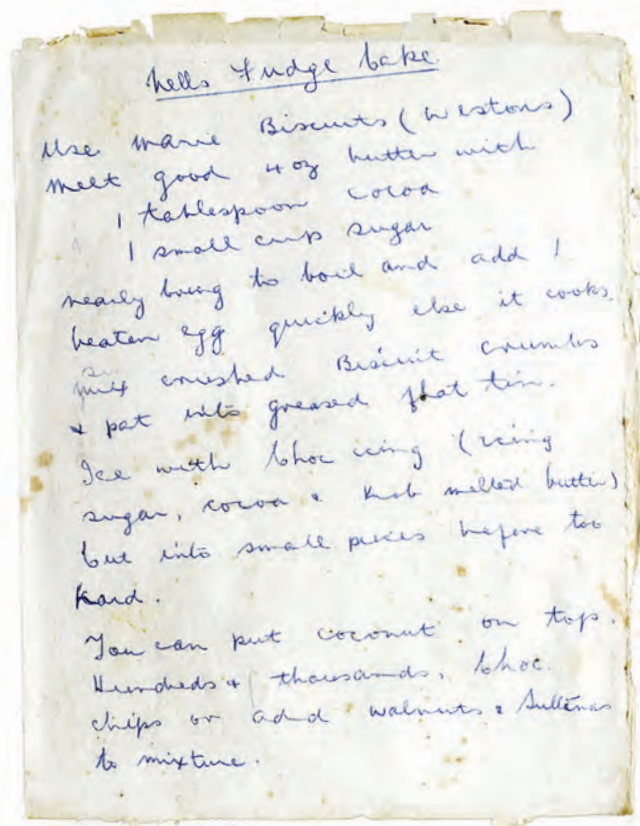 Nells Fudge Cake
Use Marie Biscuits (Westons)
Melt good 4 oz butter with
1 tablespoon cocoa
1 small cup sugar
nearly bring to boil and add 1
beaten egg quickly else it cooks.
mix crushed Biscuit crumbs
& pat into greased flat tin.
Ice with Choc icing (icing
sugar, cocoa & knob melted butter)
Cut into small pieces before too
hard.
You can put coconut on top.
Hundreds & thousands, Choc.
chips or add walnuts & Sultanas
to mixture.